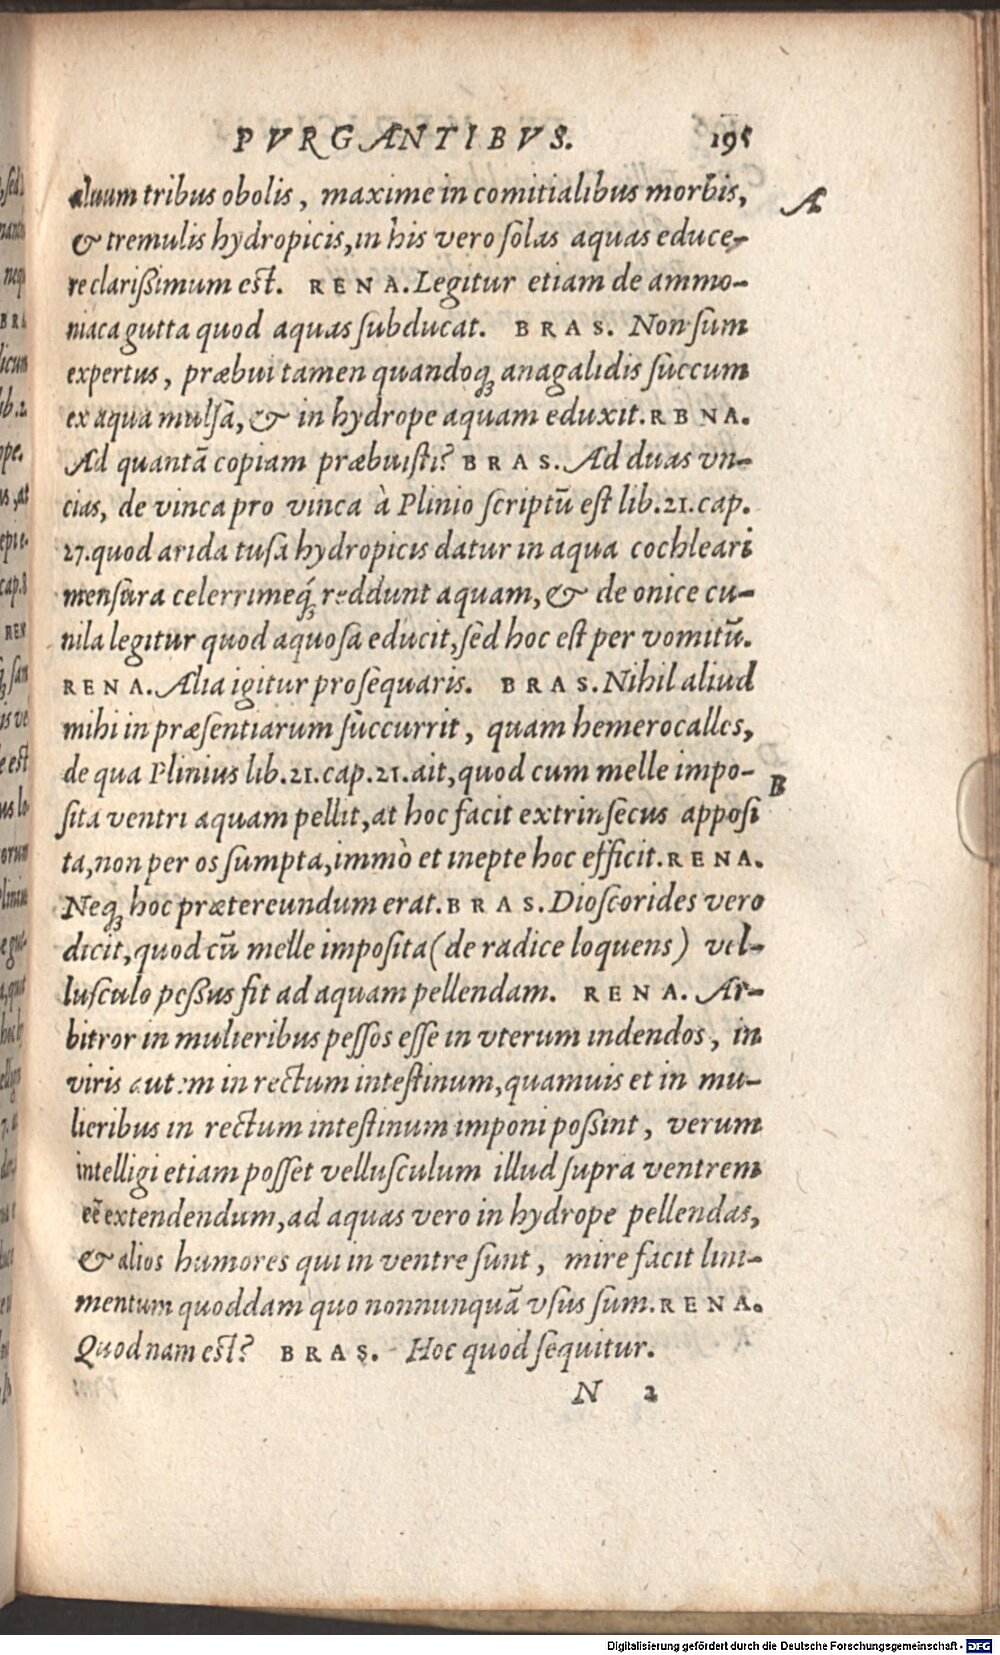 PVRGANTIBVS. 195
aluum tribus obolis, maxime in comitialibus morbis, A
& tremulis hydropicis, in his vero solas aquas educe-
re clarißimum est. RENA. Legitur etiam de ammo-
niaca gutta quod aquas subducat. BRAS. Non sum
expertus, præbui tamen quandoq; anagalidis succum
ex aqua mulsa, & in hydrope aquam eduxit. RBNA.
Ad quantā copiam præbuisti? BRAS. Ad duas vn-
cias, de vinca pro vinca à Plinio scriptū est lib.21.cap.
27. quod arida tusa hydropicis datur in aqua cochleari
mensura celerrimeq́; reddunt aquam, & de onice cu-
nila legitur quod aquosa educit, sed hoc est per vomitū.
RENA. Alia igitur prosequaris. BRAS. Nihil aliud
mihi in præsentiarum succurrit, quam hemerocalles,
de qua Plinius lib.21.cap.21. ait, quod cum melle impo-
B
sita ventri aquam pellit, at hoc facit extrinsecus apposi
ta, non per os sumpta, immò et inepte hoc efficit. RENA.
Neq; hoc prætereundum erat. BRAS. Dioscorides vero
dicit, quod cū melle imposita (de radice loquens) vel-
lusculo peßus fit ad aquam pellendam. RENA. Ar-
bitror in mulieribus pessos esse in vterum indendos, in
viris autem in rectum intestinum, quamuis et in mu-
lieribus in rectum intestinum imponi poßint, verum
intelligi etiam posset vellusculum illud supra ventrem
eē extendendum, ad aquas vero in hydrope pellendas,
& alios humores qui in ventre sunt, mire facit lini-
mentum quoddam quo nonnunquā vsus sum. RENA.
Quodnam est? BRAS. Hoc quod sequitur.
N 2
Digitalisierung gefördert durch die Deutsche Forschungsgemeinschaft - DFG